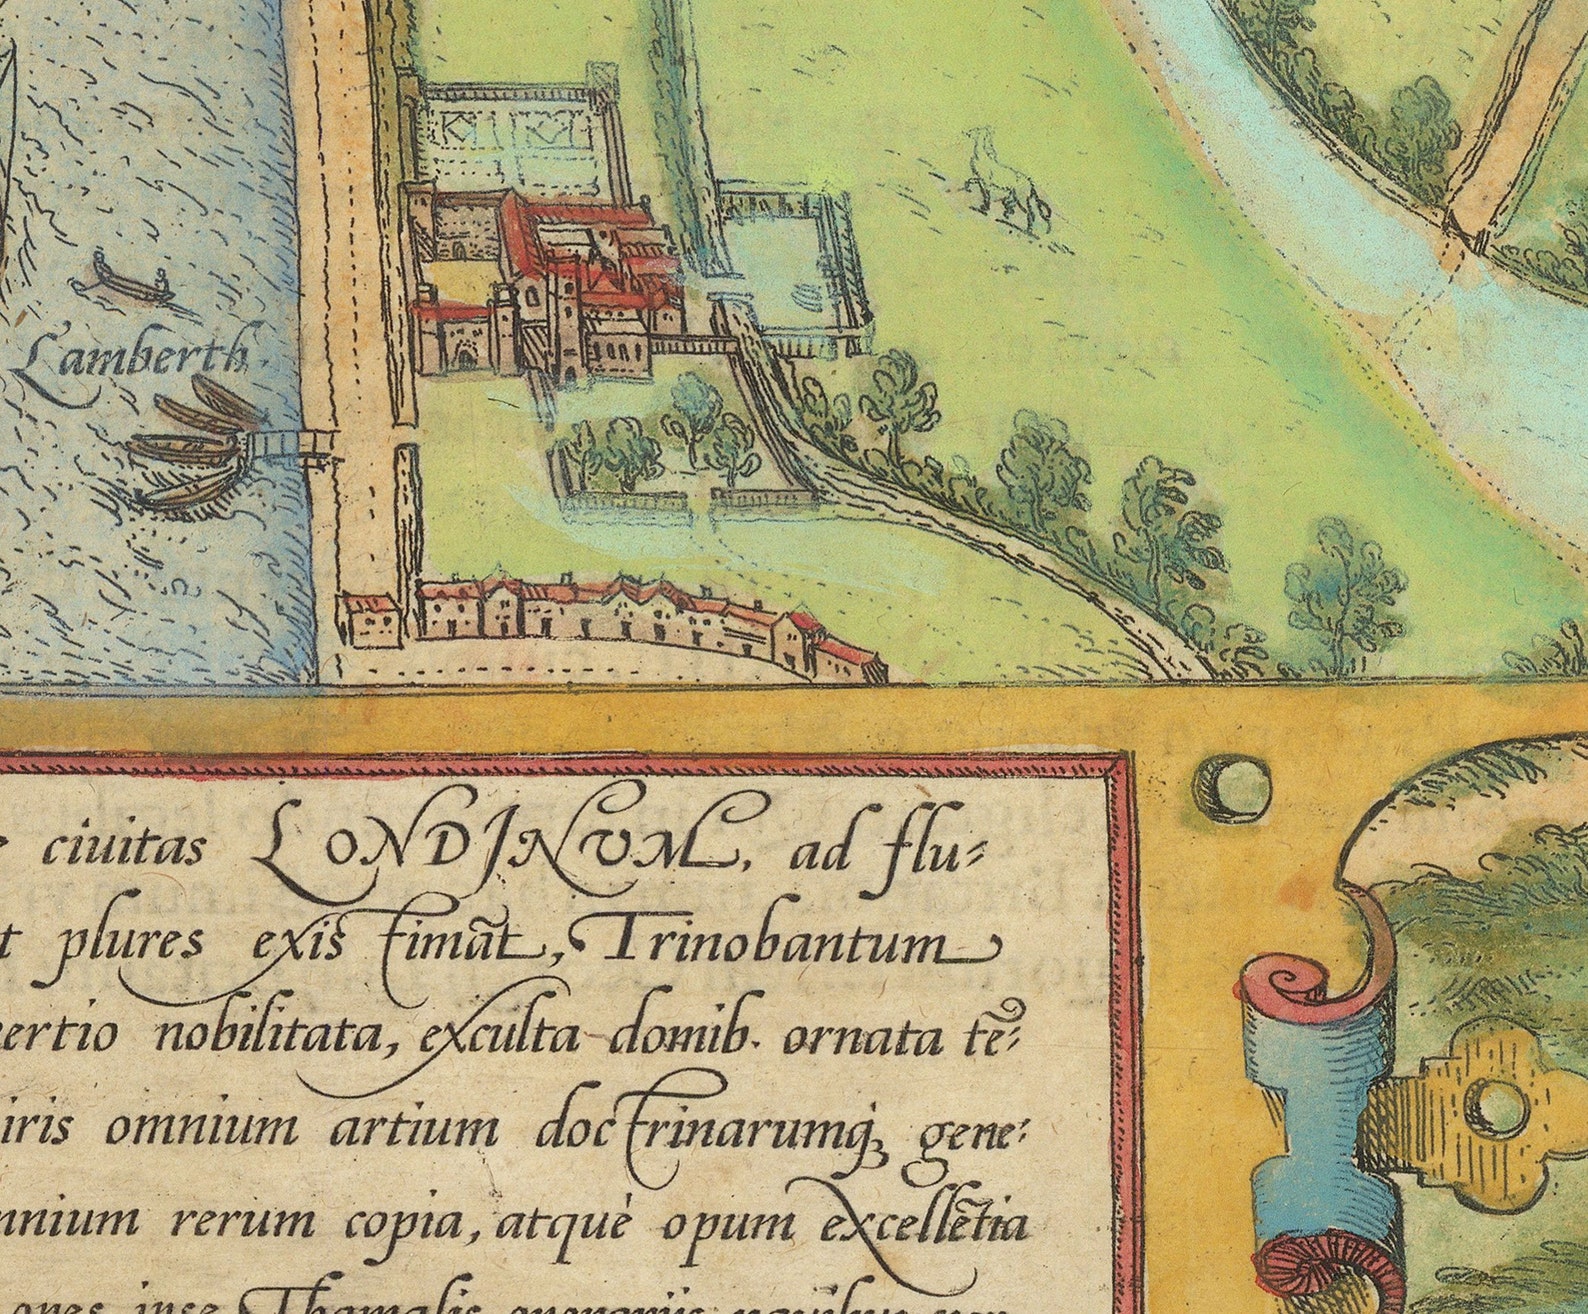 Lamberth.
ciuitas LONDINVM, ad flu-
plures existimāt, Trinobantum
nobilitata, exculta domib. ornata tē-
omnium artium doctrinarumq́₃ gene-
rerum copia, atquè opum excellētia